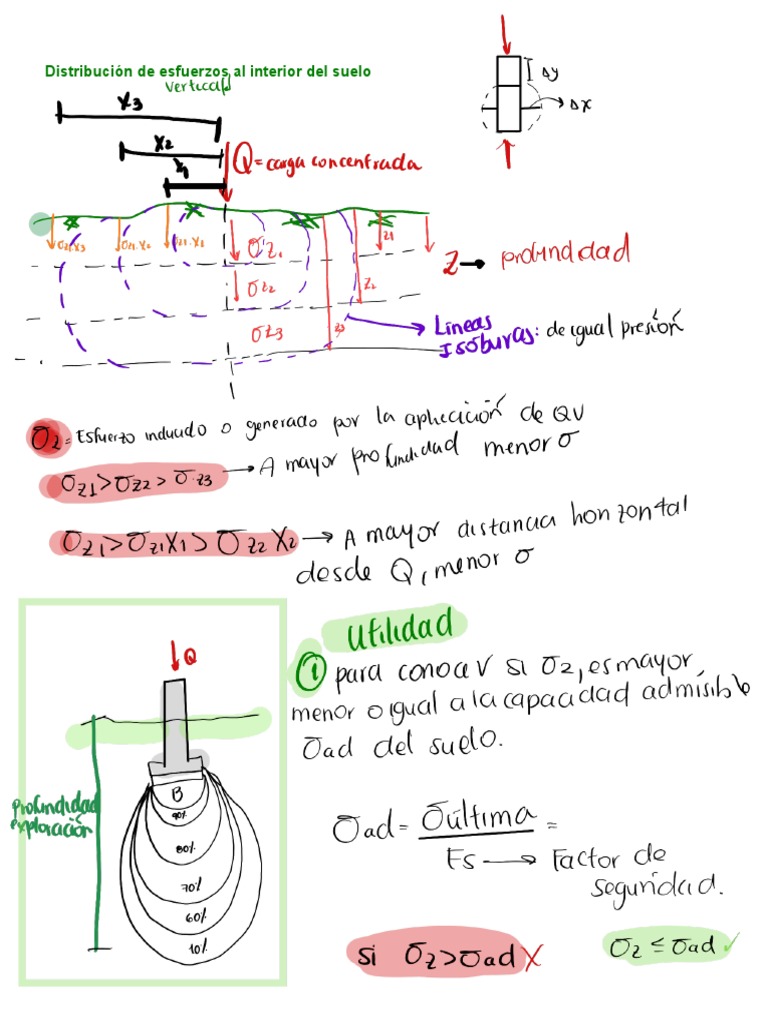 Distribución de esfuerzos al interior del suelo
Vertical
Δy
Δx
X3
X2
X1
Q = carga concentrada
σz1·x3
σz1·x2
σz1·x1
σz1
σz2
σz3
z1
z2
z3
Z → profundidad
Líneas
Isóbaras: de igual presión
σz = Esfuerzo inducido o generado por la aplicación de QV
σz1 > σz2 > σz3 → A mayor profundidad menor σ
σz1 > σz1X1 > σz2X2 → A mayor distancia horizontal
desde Q, menor σ
Utilidad
① para conocer si σz, es mayor,
menor o igual a la capacidad admisible
σad del suelo.
Q
Profundidad
exploración
B
90%
80%
70%
60%
10%
σad = σúltima =
Fs → Factor de
seguridad.
si σz > σad X
σz ≤ σad ✓